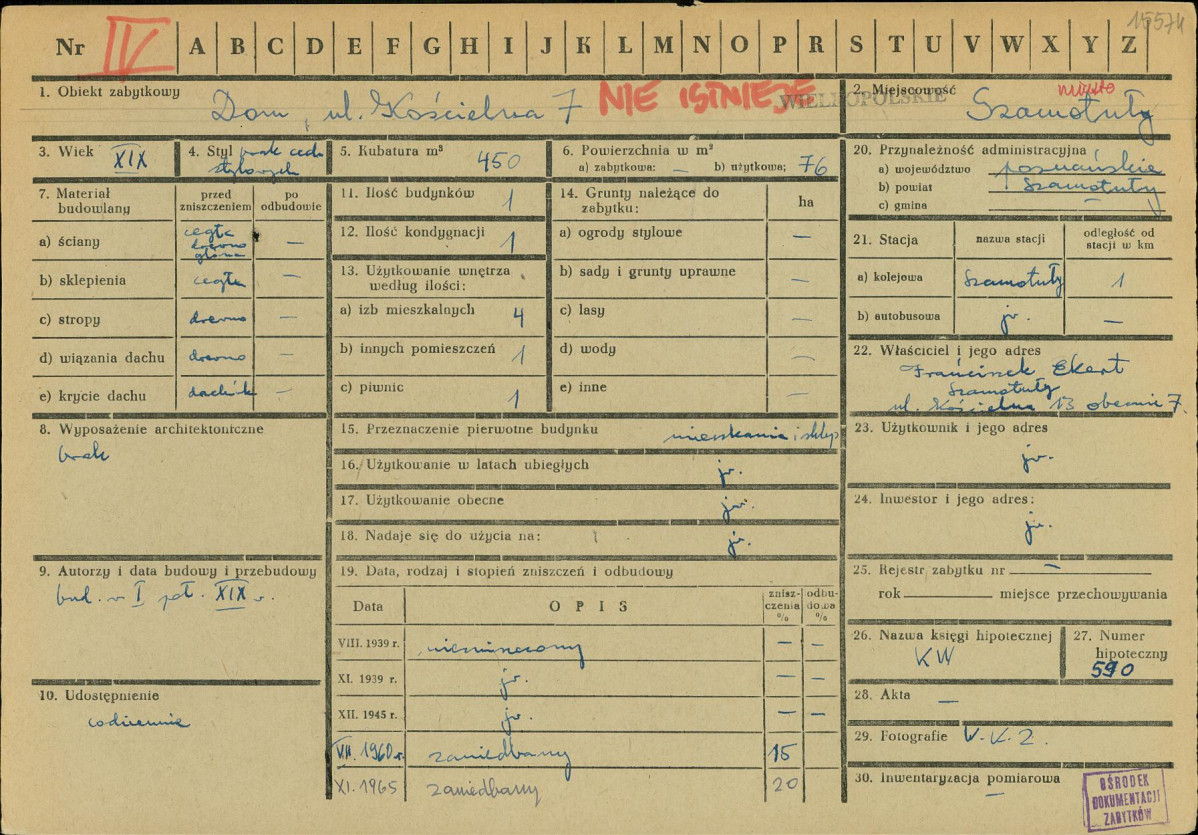 15574
Nr IV A B C D E F G H I J K L M N O P R S T U V W X Y Z
1. Obiekt zabytkowy
Dom, ul. Kościelna 7 NIE ISTNIEJE
WIELKOPOLSKIE
2. Miejscowość miasto
Szamotuły
3. Wiek XIX
4. Styl brak cech
stylowych
5. Kubatura m³ 450
6. Powierzchnia w m²
a) zabytkowa: — b) użytkowa; 76
7. Materiał budowlany
przed zniszczeniem
po odbudowie
a) ściany cegła drewno glina —
b) sklepienia cegła —
c) stropy drewno —
d) wiązania dachu drewno —
e) krycie dachu dachówk —
8. Wyposażenie architektoniczne
brak
9. Autorzy i data budowy i przebudowy
bud. w I poł. XIX w.
10. Udostępnienie
codziennie
11. Ilość budynków 1
12. Ilość kondygnacji 1
13. Użytkowanie wnętrza
według ilości:
a) izb mieszkalnych 4
b) innych pomieszczeń 1
c) piwnic 1
14. Grunty należące do
zabytku: ha
a) ogrody stylowe —
b) sady i grunty uprawne —
c) lasy —
d) wody —
e) inne —
15. Przeznaczenie pierwotne budynku mieszkania i sklep
16. Użytkowanie w latach ubiegłych jw.
17. Użytkowanie obecne jw.
18. Nadaje się do użycia na: jw.
19. Data, rodzaj i stopień zniszczeń i odbudowy
Data OPIS znisz-czenia % odbu-dowa %
VIII. 1939 r. niezniszczony — —
XI. 1939 r. jw. — —
XII. 1945 r. jw. — —
VII. 1960 r. zaniedbany 15
XI. 1965 zaniedbany 20
20. Przynależność administracyjna
a) województwo poznańskie
b) powiat Szamotuły
c) gmina
21. Stacja nazwa stacji odległość od stacji w km
a) kolejowa Szamotuły 1
b) autobusowa jw. —
22. Właściciel i jego adres
Franciszek Ekert
Szamotuły
ul. Kościelna 13 obecnie 7.
23. Użytkownik i jego adres
jw.
24. Inwestor i jego adres:
jw.
25. Rejestr zabytku nr —
rok miejsce przechowywania
26. Nazwa księgi hipotecznej
KW
27. Numer
hipoteczny
590
28. Akta —
29. Fotografie W.K.Z.
30. Inwentaryzacja pomiarowa
—
OŚRODEK
DOKUMENTACJI
ZABYTKÓW